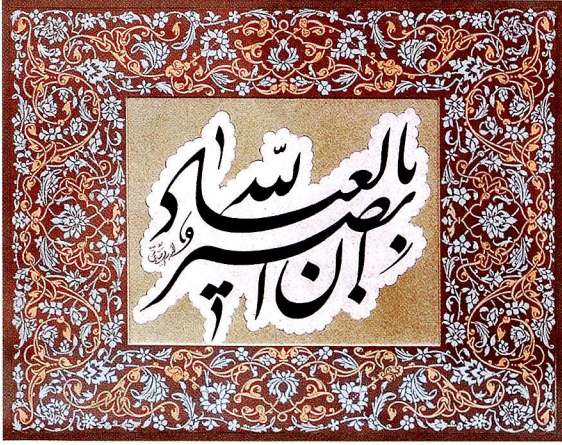 ان الله بصیر بالعباد